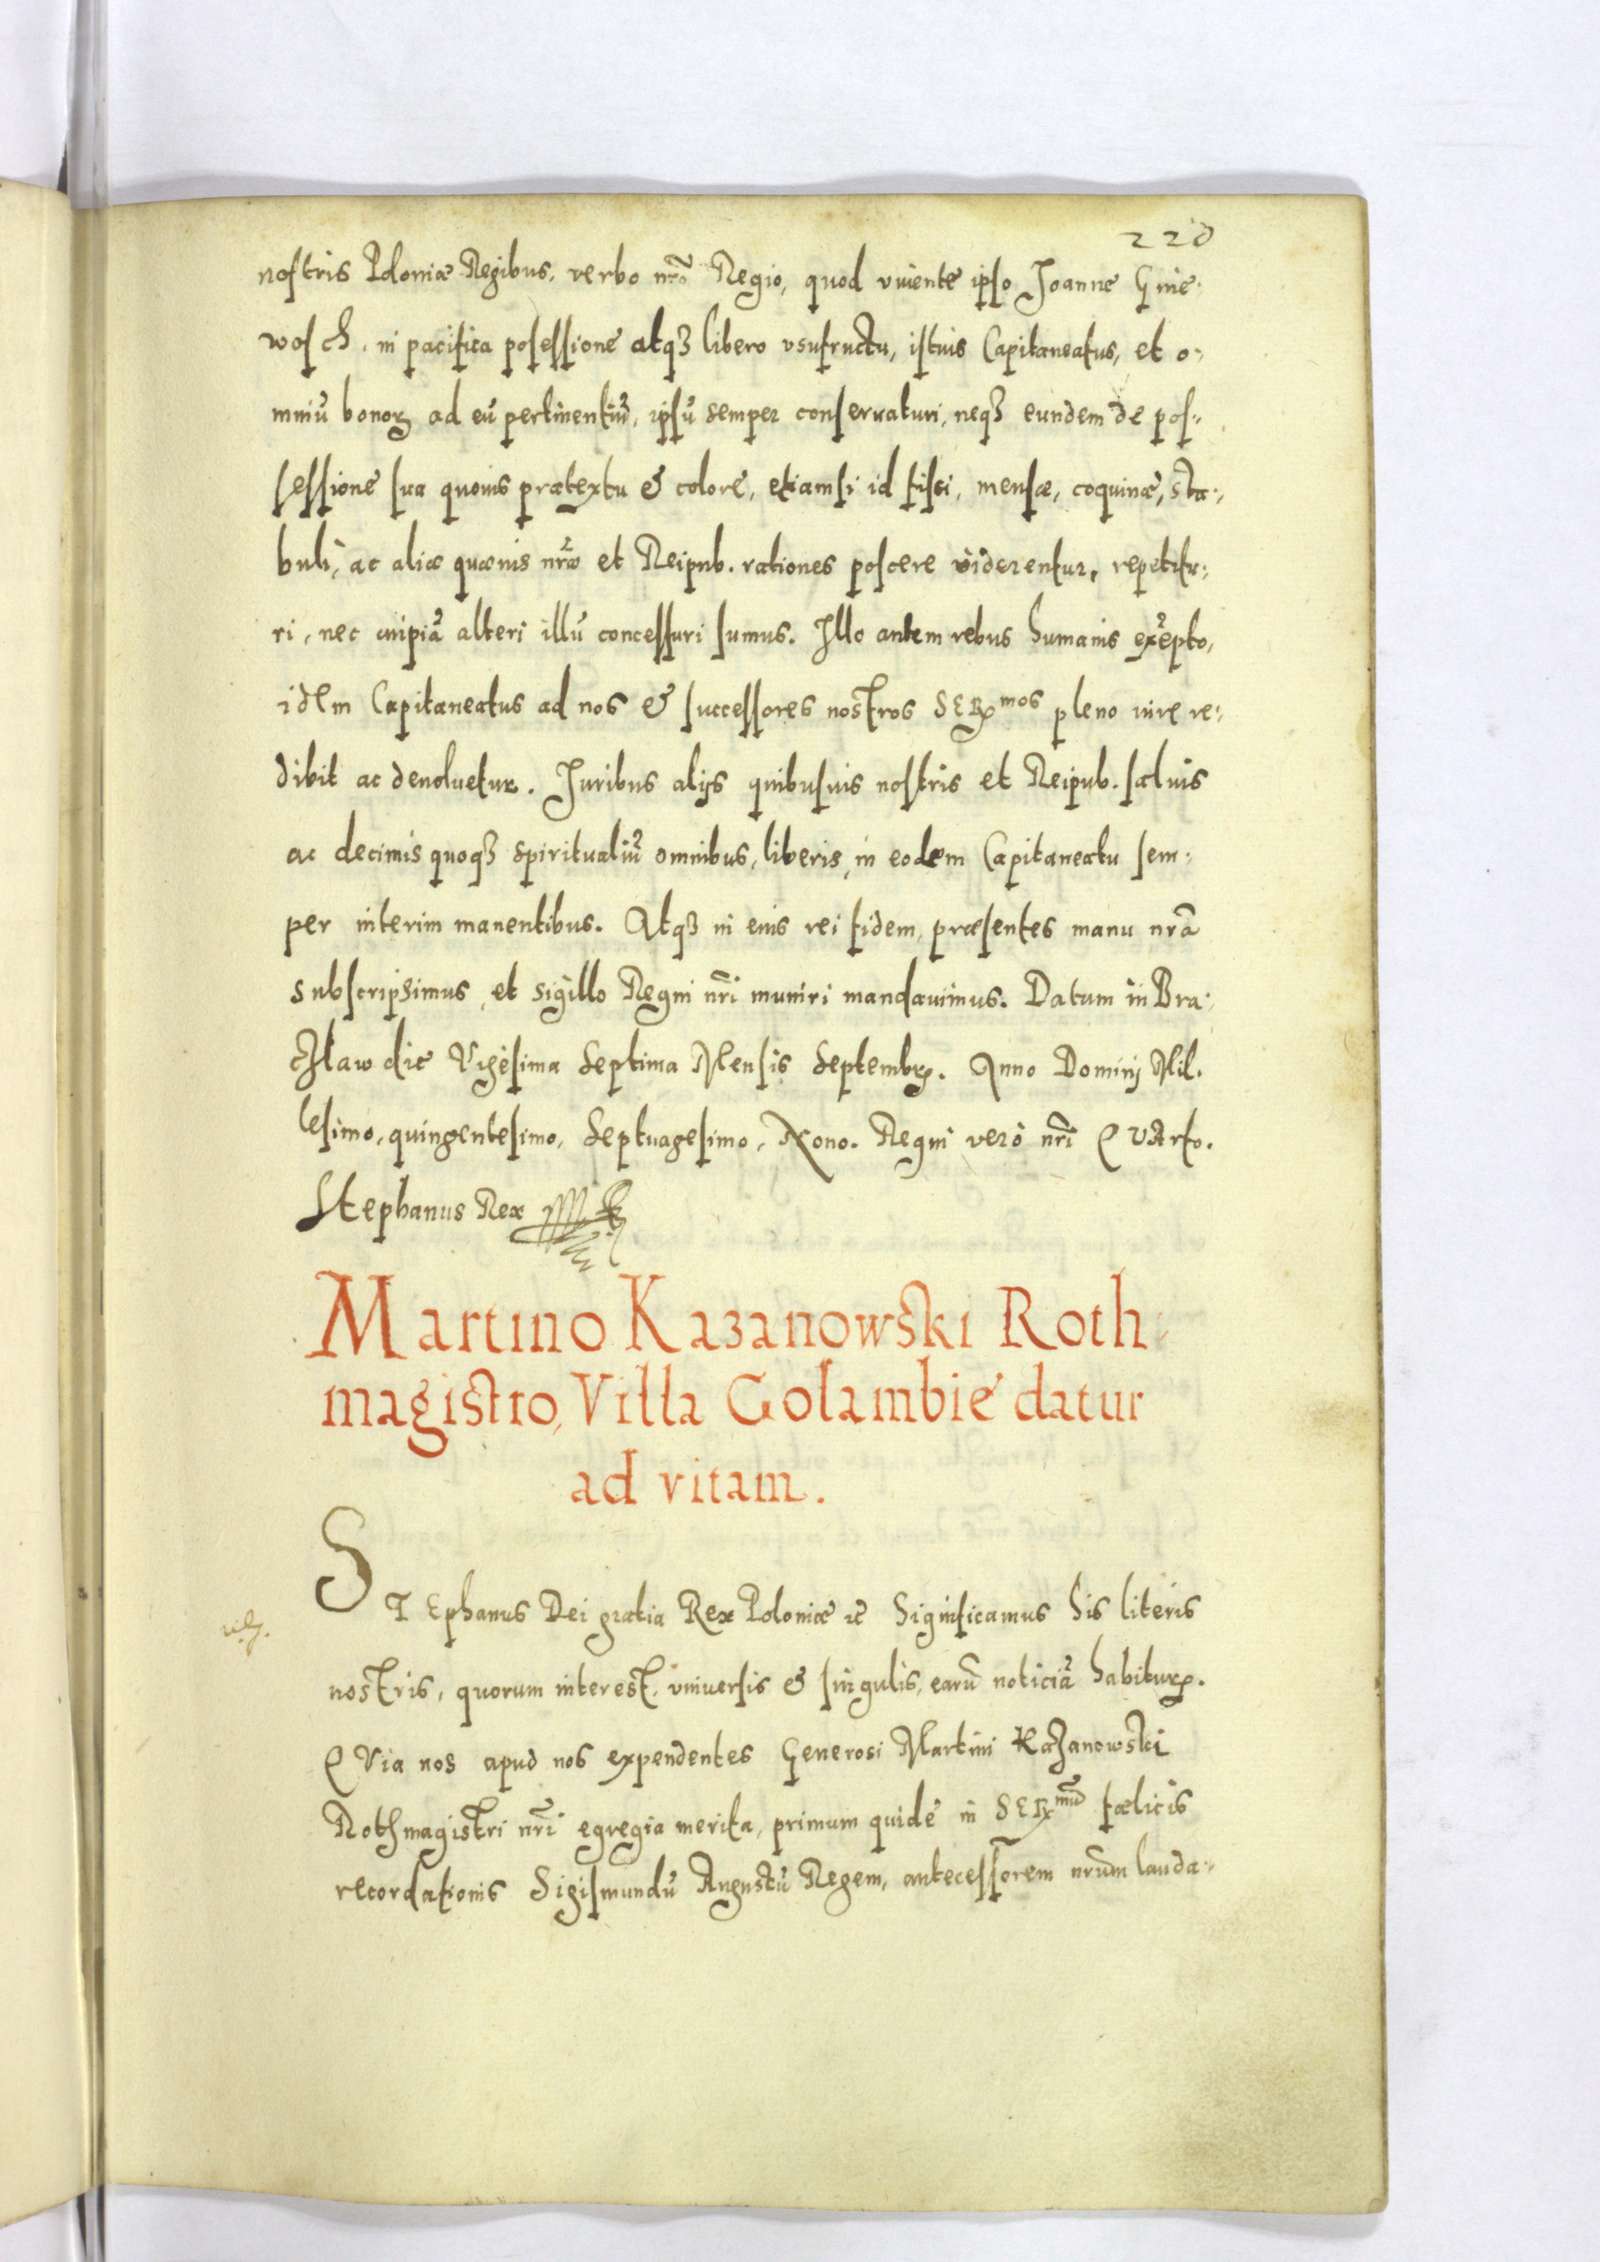 220
nostris Poloniæ Regibus, verbo nr̃o Regio, quod viuente ipso Joanne Gnie-
wosch, in pacifica possessione atqꝫ libero vsufructu, istius Capitaneatus, et o-
mniũ bonoꝝ ad eũ pertinentiũ, ipsũ semper conseruaturi, neqꝫ eundem de pos-
sessione sua quouis prætextu & colore, etiamsi id fisci, mensæ, coquinæ, sta-
buli, ac aliæ quæuis nr̃æ et Reipub. rationes poscere viderentur, repetitu-
ri, nec cuipiã alteri illũ concessuri sumus. Illo autem rebus humanis exẽpto,
idem Capitaneatus ad nos & successores nostros SERmos pleno iure re-
dibit ac deuoluetur. Juribus alijs quibusuis nostris et Reipub. saluis
ac decimis quoqꝫ spiritualiũ omnibus, liberis, in eodem Capitaneatu sem-
per interim manentibus. Atqꝫ in eius rei fidem, præsentes manu nrã
subscripsimus, et sigillo Regni nr̃i muniri mandauimus. Datum in Bra-
czlaw die Vigesima Septima Mensis Septembꝝ. Anno Dominj Mil-
lesimo, quingentesimo, Septuagesimo, Nono. Regni verò nr̃i QVArto.
Stephanus Rex
Martino Kaзanowski Roth-
magistro, Villa Golambie datur
ad vitam.
STEphanus Dei gratia Rex Poloniæ ꝛc Significamus his literis
nostris, quorum interest, vniuersis & singulis, earũ noticiã habituꝝ.
QVia nos apud nos expendentes Generosi Martini Kazanowski
Rothmagistri nr̃i egregia merita, primum quidẽ in SERmũ fælicis
recordationis Sigismundũ Augustũ Regem, antecessorem nr̃um lauda-